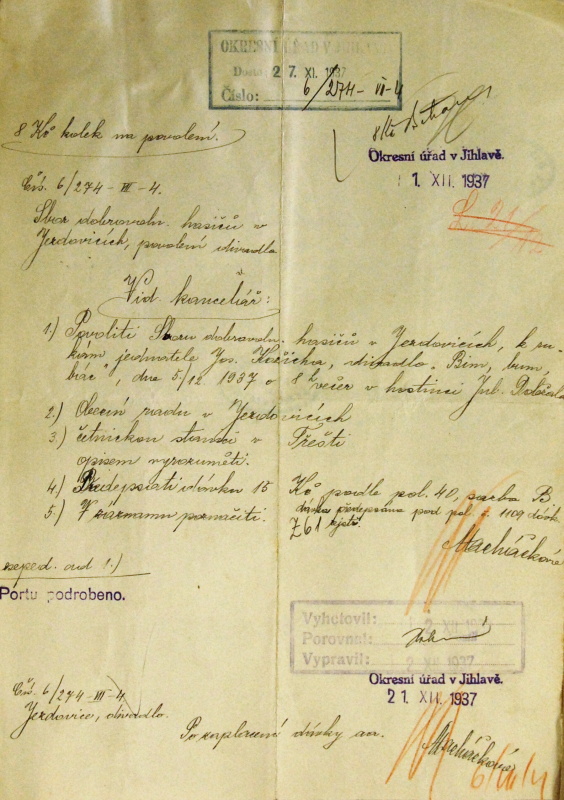 OKRESNÍ ÚŘAD V JIHLAVĚ
Došlo: 27. XI. 1937
Číslo: 6/274-III-4
8 Kč kolek na povolení.
Okresní úřad v Jihlavě.
1. XII. 1937
Čís. 6/274-III-4.
Sbor dobrovoln. hasičů v
Jezdovicích, povolení divadla
Vid. kancelář:
1.) Povoliti Sboru dobrovoln. hasičů v Jezdovicích, k ru-
kám jednatele Jos. divadlo "Bim, bum,
bác", dne 5./12. 1937 o 8 h večer v hostinci Jul. Doležala
2.) Obecní radu v Jezdovicích
3.) četnickou stanici v Třešti
opisem vyrozuměti.
4.) Předepsati dávku 15 Kč podle pol. 40, sazba B
dávka předepsána pod pol. č. 1109 dávk.
5.) V záznamu poznačiti.
Macháčková
exped. ad 1.)
Portu podrobeno.
Vyhotovil: 2 XII 1937
Porovnal:
Vypravil: 2 XII 1937
Okresní úřad v Jihlavě.
21. XII. 1937
Čís. 6/274-III-4
Jezdovice, divadlo.
Po zaplacení dávky aa.
Macháčková